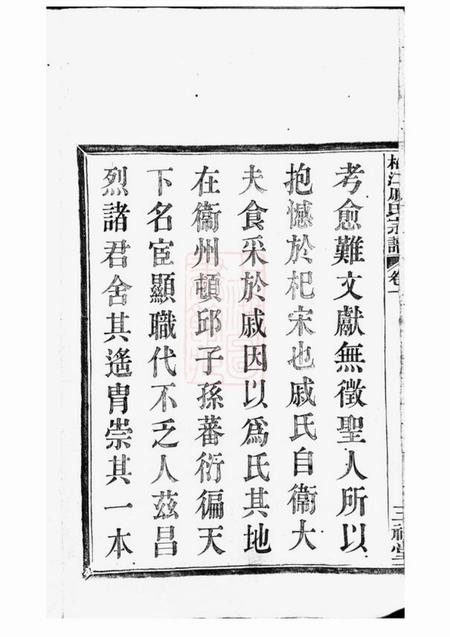 江戚氏宗譜 卷
考愈難文獻無徵聖人所以
抱憾於杞宋也戚氏自衞大
夫食采於戚因以爲氏其地
在衞州頓邱子孫蕃衍徧天
下名宦顯職代不乏人茲昌
烈諸君舍其遙胄崇其一本